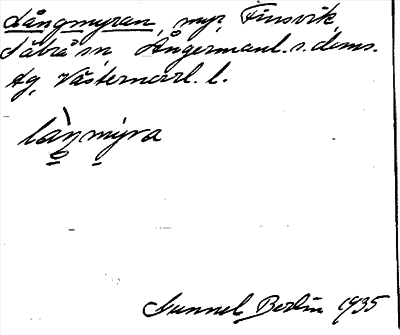 Långmyran, myr, Finsvik,
Säbrå sn, Ångermanl. s. doms.
Ag, Västernorrl. l.
làŋmýra
Gunnel Berlin 1935